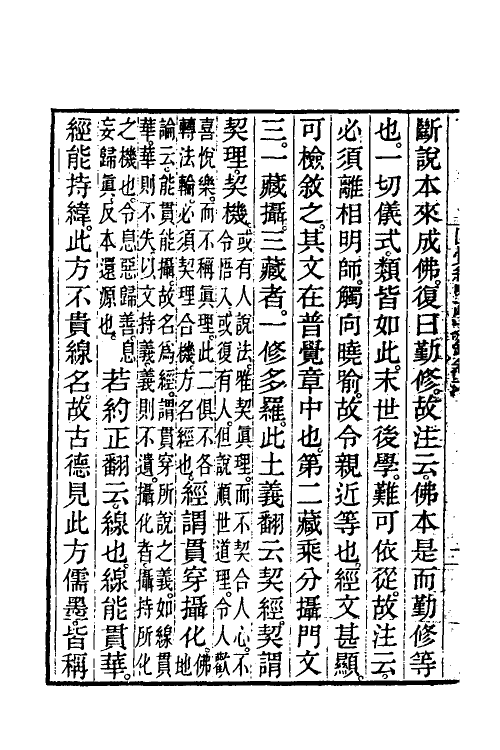 斷說本來成佛。復曰勤修。故注云。佛本是而勤修等
也。一切儀式。類皆如此。末世後學。難可依從。故注云。
必須離相明師。觸向曉喻。故令親近等也。經文甚顯。
可檢敘之。其文在普覺章中也。第二藏乘分攝門。文
三。一藏攝。三藏者。一修多羅。此土義翻云契經。契謂
契理。契機。
或有人說法。雖契眞理。而不契合人心。不
令悟入。或復有人。但說順世道理。令人歡
喜悅樂。而不稱眞理。此二俱不名
轉法輪。必須契理合機。方名經也。
經謂貫穿攝化。
佛
地
論云。能貫能攝。故名爲經。謂貫穿所說之義。如線貫
華。華則不失。以文持義。義則不遺。攝化者。攝持所化
之機也。令息惡歸善。息
妄歸眞。反本還源也。
若約正翻云。線也。線能貫華。
經能持緯。此方不貴線名。故古德見此方儒墨。皆稱